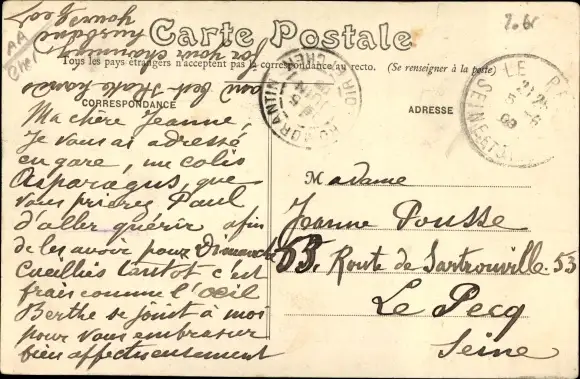 Carte Postale
Tous les pays étrangers n'acceptent pas la correspondance au recto. (Se renseigner à la poste)
CORRESPONDANCE
ADRESSE
Ma chère Jeanne,
Je vous ai adressé
en gare, un colis
Asparagus, que
vous prierez Paul
d'aller quérir afin
de les avoir pour Dimanche
Cueillies tantôt c'est
frais comme l'œil
Berthe se joint à moi
pour vous embrasser
bien affectueusement
Madame
Jeanne Pousse
53. Route de Sartrouville. 53
Le Pecq
Seine
with best shake hands
for your charming
husband
yours
LE PECQ
ROMORANTIN